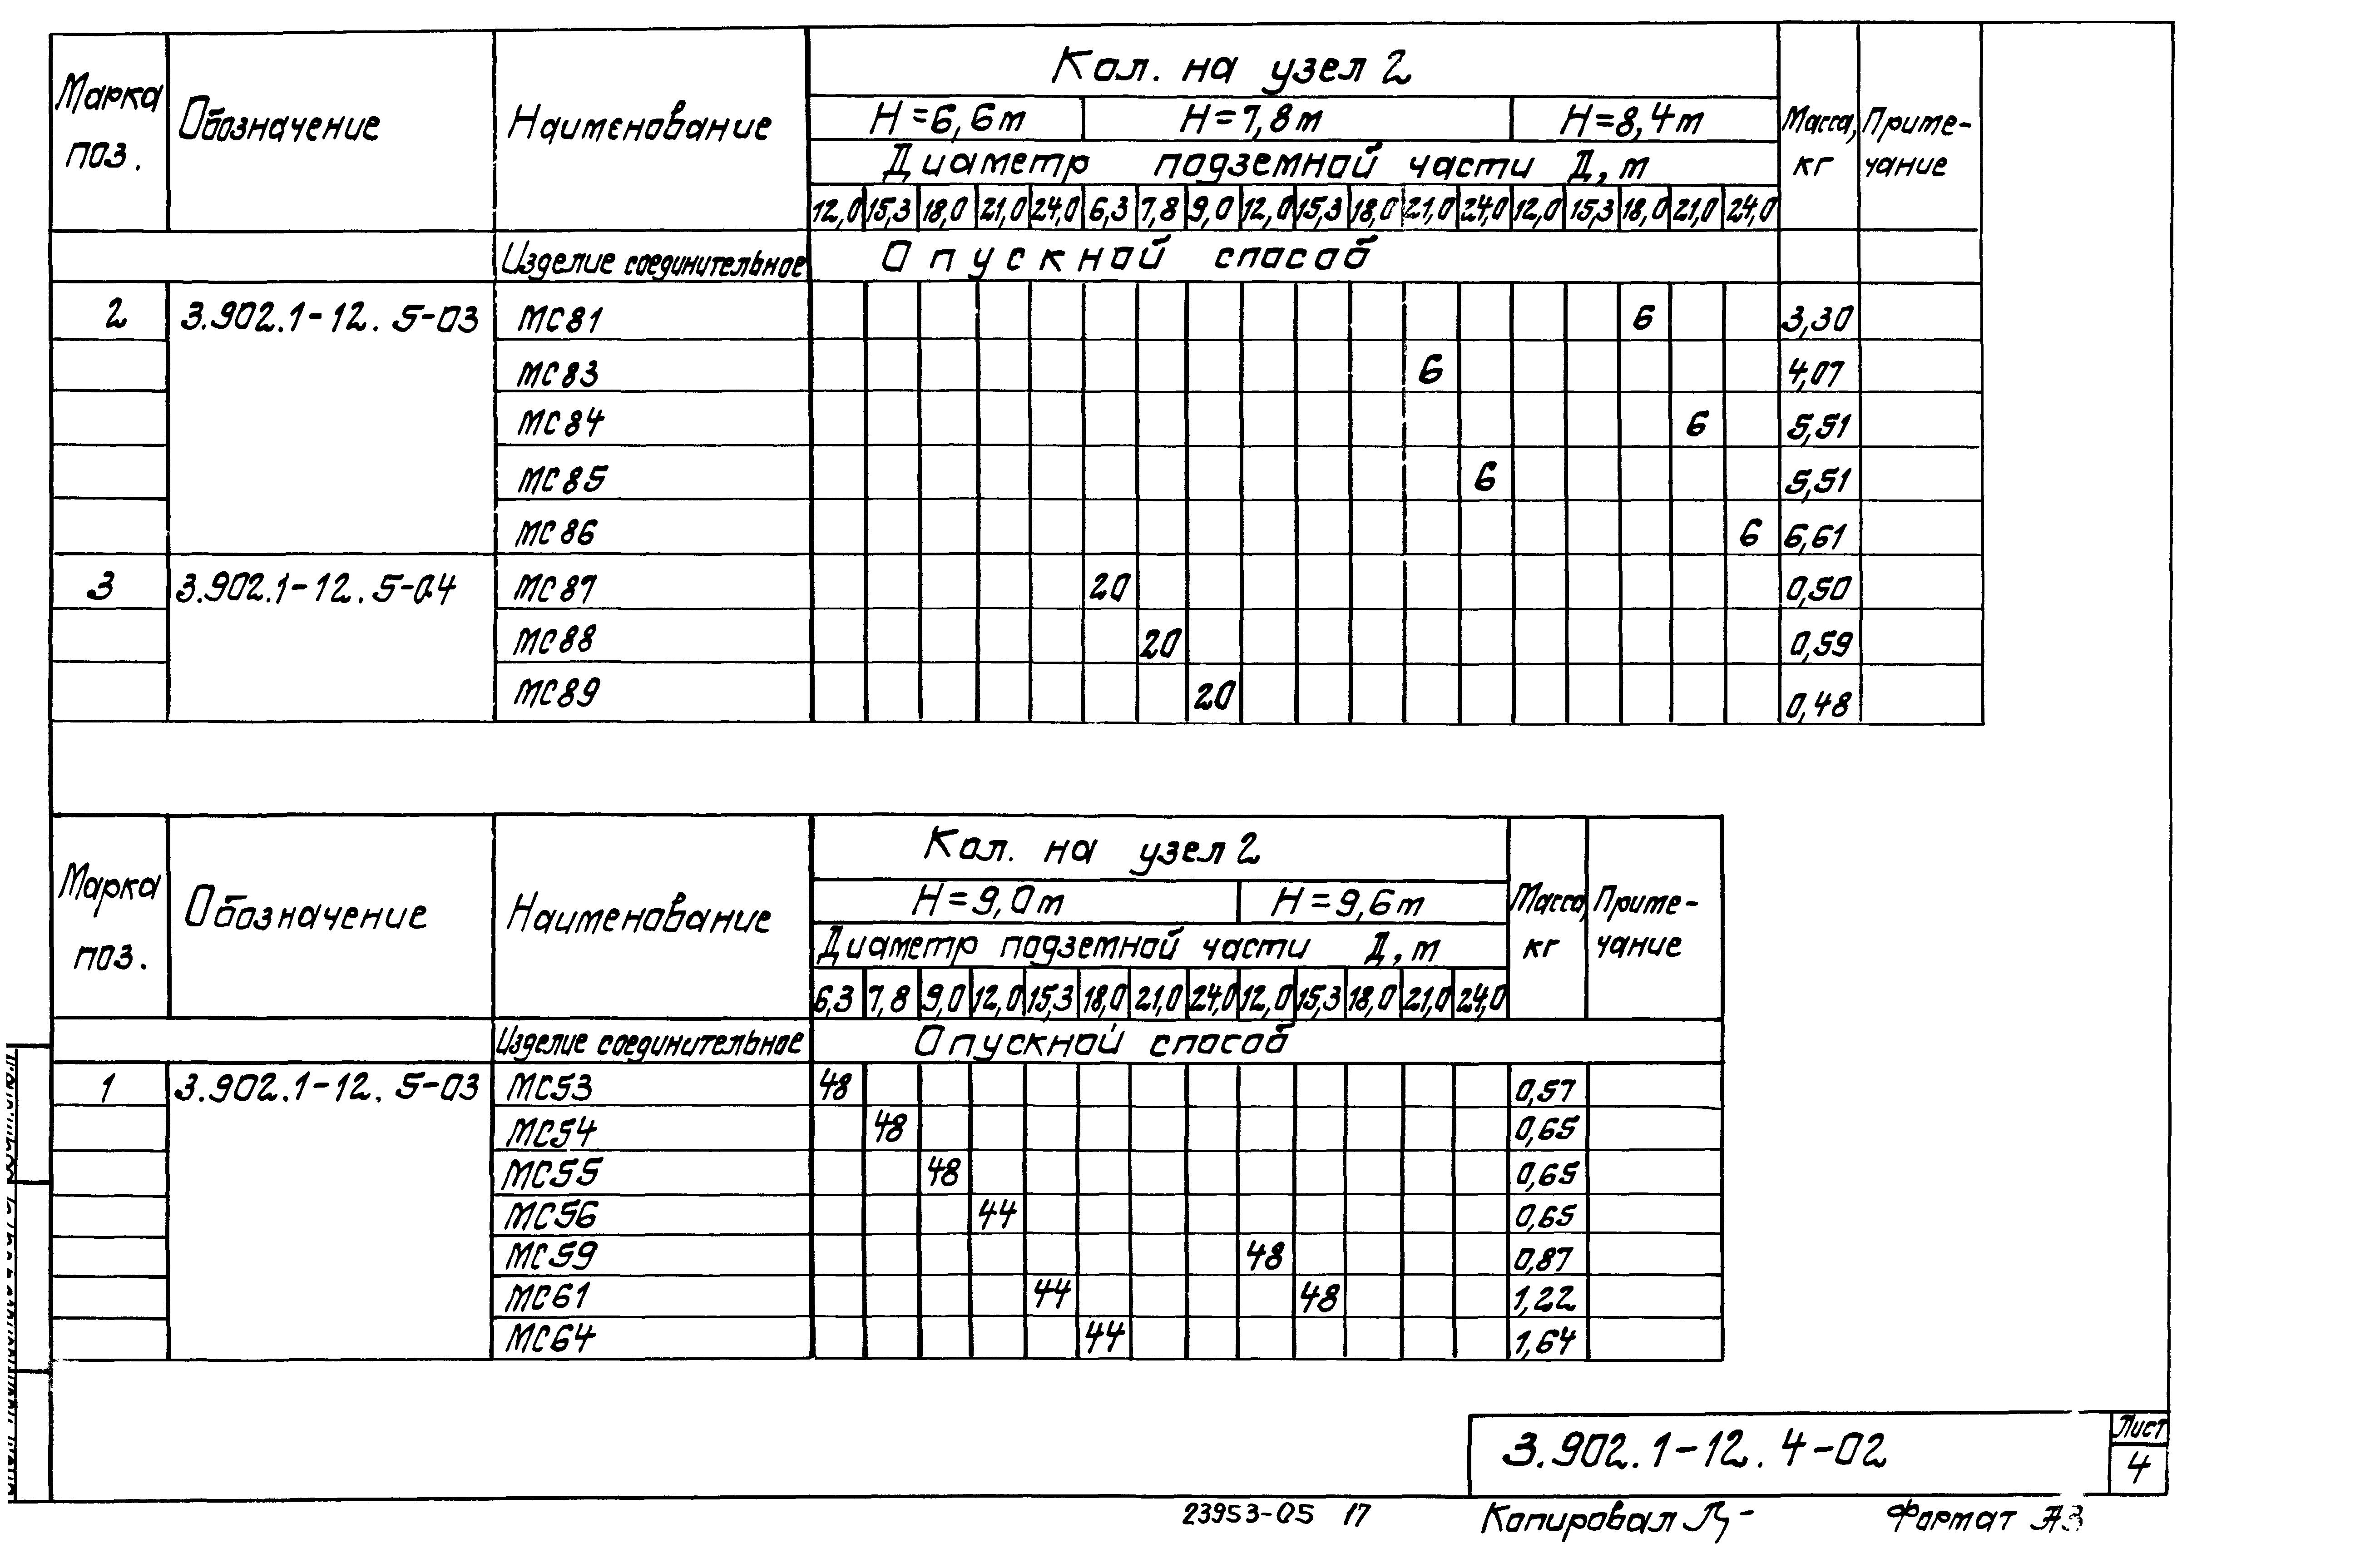 Марка поз. Обозначение Наименование Кол. на узел 2 Масса, кг Приме-чание
H=6,6м H=7,8м H=8,4м
Диаметр подземной части Д, м
12,0 15,3 18,0 21,0 24,0 6,3 7,8 9,0 12,0 15,3 18,0 21,0 24,0 12,0 15,3 18,0 21,0 24,0
Изделие соединительное Опускной способ
2 3.902.1-12. 5-03 МС81 6 3,30
МС83 6 4,07
МС84 6 5,51
МС85 6 5,51
МС86 6 6,61
3 3.902.1-12. 5-04 МС87 20 0,50
МС88 20 0,59
МС89 20 0,48
Марка поз. Обозначение Наименование Кол. на узел 2 Масса, кг Приме-чание
H=9,0м H=9,6м
Диаметр подземной части Д, м
6,3 7,8 9,0 12,0 15,3 18,0 21,0 24,0 12,0 15,3 18,0 21,0 24,0
Изделие соединительное Опускной способ
1 3.902.1-12. 5-03 МС53 48 0,57
МС54 48 0,65
МС55 48 0,65
МС56 44 0,65
МС59 48 0,87
МС61 44 48 1,22
МС64 44 1,64
3.902.1-12. 4-02
Лист
4
23953-05 17
Копировал
Формат А3